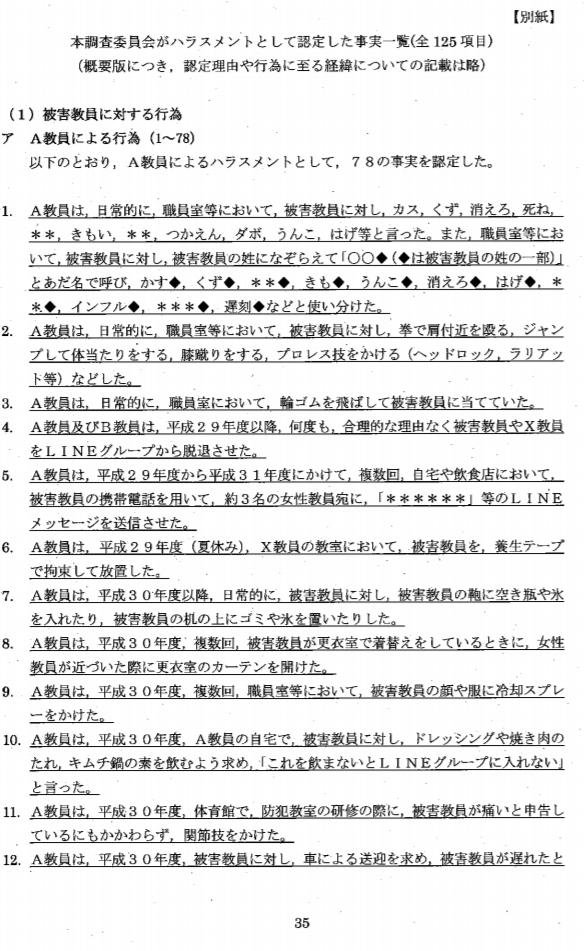 【別紙】
本調査委員会がハラスメントとして認定した事実一覧(全125項目)
（概要版につき，認定理由や行為に至る経緯についての記載は略）
（1）被害教員に対する行為
ア　A教員による行為（1～78）
以下のとおり，A教員によるハラスメントとして，７８の事実を認定した。
1. A教員は，日常的に，職員室等において，被害教員に対し，カス，くず，消えろ，死ね，
＊＊，きもい，＊＊，つかえん，ダボ，うんこ，はげ等と言った。また，職員室等にお
いて，被害教員に対し，被害教員の姓になぞらえて「〇〇◆（◆は被害教員の姓の一部）」
とあだ名で呼び，かす◆，くず◆，＊＊◆，きも◆，うんこ◆，消えろ◆，はげ◆，＊
＊◆，インフル◆，＊＊＊◆，遅刻◆などと使い分けた。
2. A教員は，日常的に，職員室等において，被害教員に対し，拳で肩付近を殴る，ジャン
プして体当たりをする，膝蹴りをする，プロレス技をかける（ヘッドロック，ラリアッ
ト等）などした。
3. A教員は，日常的に，職員室において，輪ゴムを飛ばして被害教員に当てていた。
4. A教員及びB教員は，平成２９年度以降，何度も，合理的な理由なく被害教員やX教員
をＬＩＮＥグループから脱退させた。
5. A教員は，平成２９年度から平成３１年度にかけて，複数回，自宅や飲食店において，
被害教員の携帯電話を用いて，約３名の女性教員宛に，「＊＊＊＊＊＊」等のＬＩＮＥ
メッセージを送信させた。
6. A教員は，平成２９年度（夏休み），X教員の教室において，被害教員を，養生テープ
で拘束して放置した。
7. A教員は，平成３０年度以降，日常的に，被害教員に対し，被害教員の鞄に空き瓶や氷
を入れたり，被害教員の机の上にゴミや氷を置いたりした。
8. A教員は，平成３０年度，複数回，被害教員が更衣室で着替えをしているときに，女性
教員が近づいた際に更衣室のカーテンを開けた。
9. A教員は，平成３０年度，複数回，職員室等において，被害教員の顔や服に冷却スプレ
ーをかけた。
10. A教員は，平成３０年度，A教員の自宅で，被害教員に対し，ドレッシングや焼き肉の
たれ，キムチ鍋の素を飲むよう求め，「これを飲まないとＬＩＮＥグループに入れない」
と言った。
11. A教員は，平成３０年度，体育館で，防犯教室の研修の際に，被害教員が痛いと申告し
ているにもかかわらず，関節技をかけた。
12. A教員は，平成３０年度，被害教員に対し，車による送迎を求め，被害教員が遅れたと
35